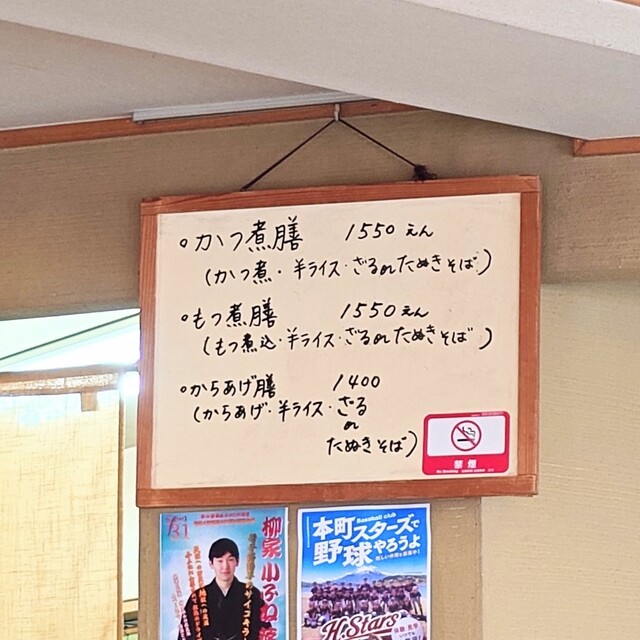 かつ煮膳 1550えん
(かつ煮・半ライス・ざるorたぬきそば)
もつ煮膳 1550えん
(もつ煮込・半ライス・ざるorたぬきそば)
からあげ膳 1400
(からあげ・半ライス・ざる
or
たぬきそば)
禁煙
No Smoking
7/31
柳家
Baseball club
本町スターズで
野球やろうよ
H.Stars